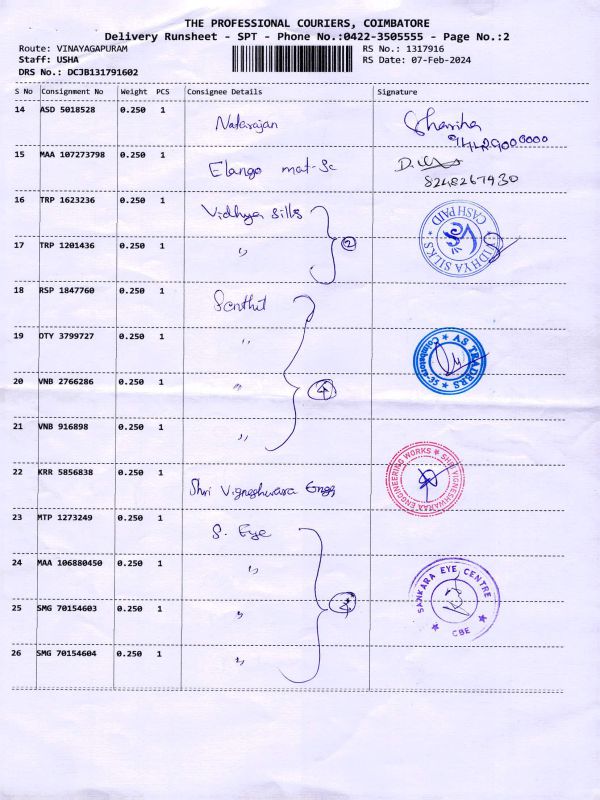 THE PROFESSIONAL COURIERS, COIMBATORE
Delivery Runsheet - SPT - Phone No.:0422-3505555 - Page No.:2
Route: VINAYAGAPURAM RS No.: 1317916
Staff: USHA RS Date: 07-Feb-2024
DRS No.: DCJB131791602
S No Consignment No Weight PCS Consignee Details Signature
14 ASD 5018528 0.250 1 Natarajan
15 MAA 107273798 0.250 1 Elango mat-Sc
8248267930
16 TRP 1623236 0.250 1 Vidhya Silks
VIDHYA SILKS ★ CASH PAID ★
17 TRP 1201436 0.250 1 " 2
18 RSP 1847760 0.250 1 Senthil
19 DTY 3799727 0.250 1 "
★ AS TRADERS ★ Coimbatore-35
20 VNB 2766286 0.250 1 " 4
21 VNB 916898 0.250 1 "
22 KRR 5856838 0.250 1 Shri Vigneshwara Engg
SHRI VIGNESHWARAA ENGINEERING WORKS ★
23 MTP 1273249 0.250 1 S. Eye
24 MAA 106880450 0.250 1 "
SANKARA EYE CENTRE ★ CBE ★
25 SMG 70154603 0.250 1 " 4
26 SMG 70154604 0.250 1 "